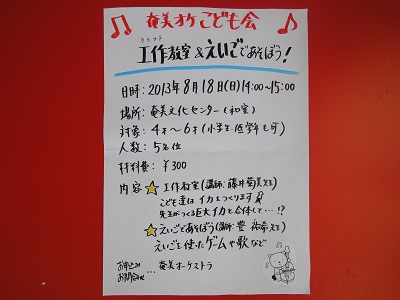 奄美オケこども会
工作教室&えいごであそぼう!
日時:2013年8月18日(日)14:00~15:00
場所:奄美文化センター(和室)
対象:4才~6才(小学生低学年も可)
人数:5名位
材料費:¥300
内容 ☆工作教室(講師:藤井菊美先生)
こども達はイカをつくります
先生がつくる巨大イカと合体して…!?
☆えいごであそぼう(講師:豊 裕希先生)
えいごを使ったゲームや歌など
お申込み
お問合せ…奄美オーケストラ